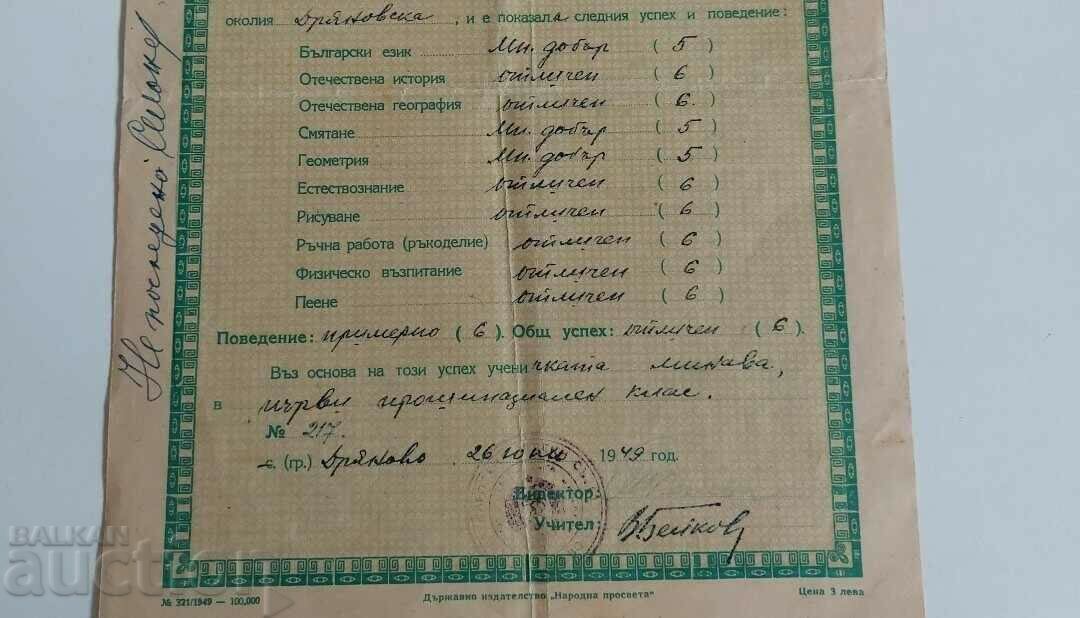 околия Дряновска, и е показала следния успех и поведение:
Български език Мн. добър (5)
Отечествена история отличен (6)
Отечествена география отличен (6.)
Смятане Мн. добър (5)
Геометрия Мн. добър (5)
Естествознание отличен (6)
Рисуване отличен (6)
Ръчна работа (ръкоделие) отличен (6)
Физическо възпитание отличен (6)
Пеене отличен (6)
Поведение: примерно (6). Общ успех: отличен (6).
Въз основа на този успех ученичката минава,
в първи прогимназиален клас.
№ 217.
с. (гр.) Дряново 26 юни 1949 год.
Директор:
Учител: В. Белков
Не последено
№ 321/1949 — 100,000
Държавно издателство „Народна просвета“
Цена 3 лева
БАЛКАН
auction